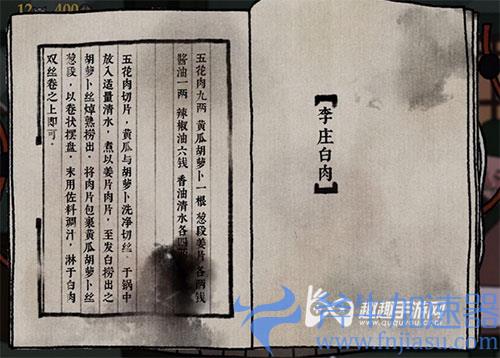 【李庄白肉】
五花肉九两 黄瓜胡萝卜一根 葱段姜片各两钱
酱油一两 辣椒油六钱 香油清水各四
五花肉切片，黄瓜与胡萝卜洗净切丝。于锅中
放入适量清水，煮以姜片肉片，至发白捞出之
胡萝卜丝焯熟捞出，将肉片包裹黄瓜胡萝卜丝
葱段，以卷状摆盘，末用佐料调汁，淋于白肉
双丝卷之上即可。
趣趣手游网
加速器
www.fnjiasu.com